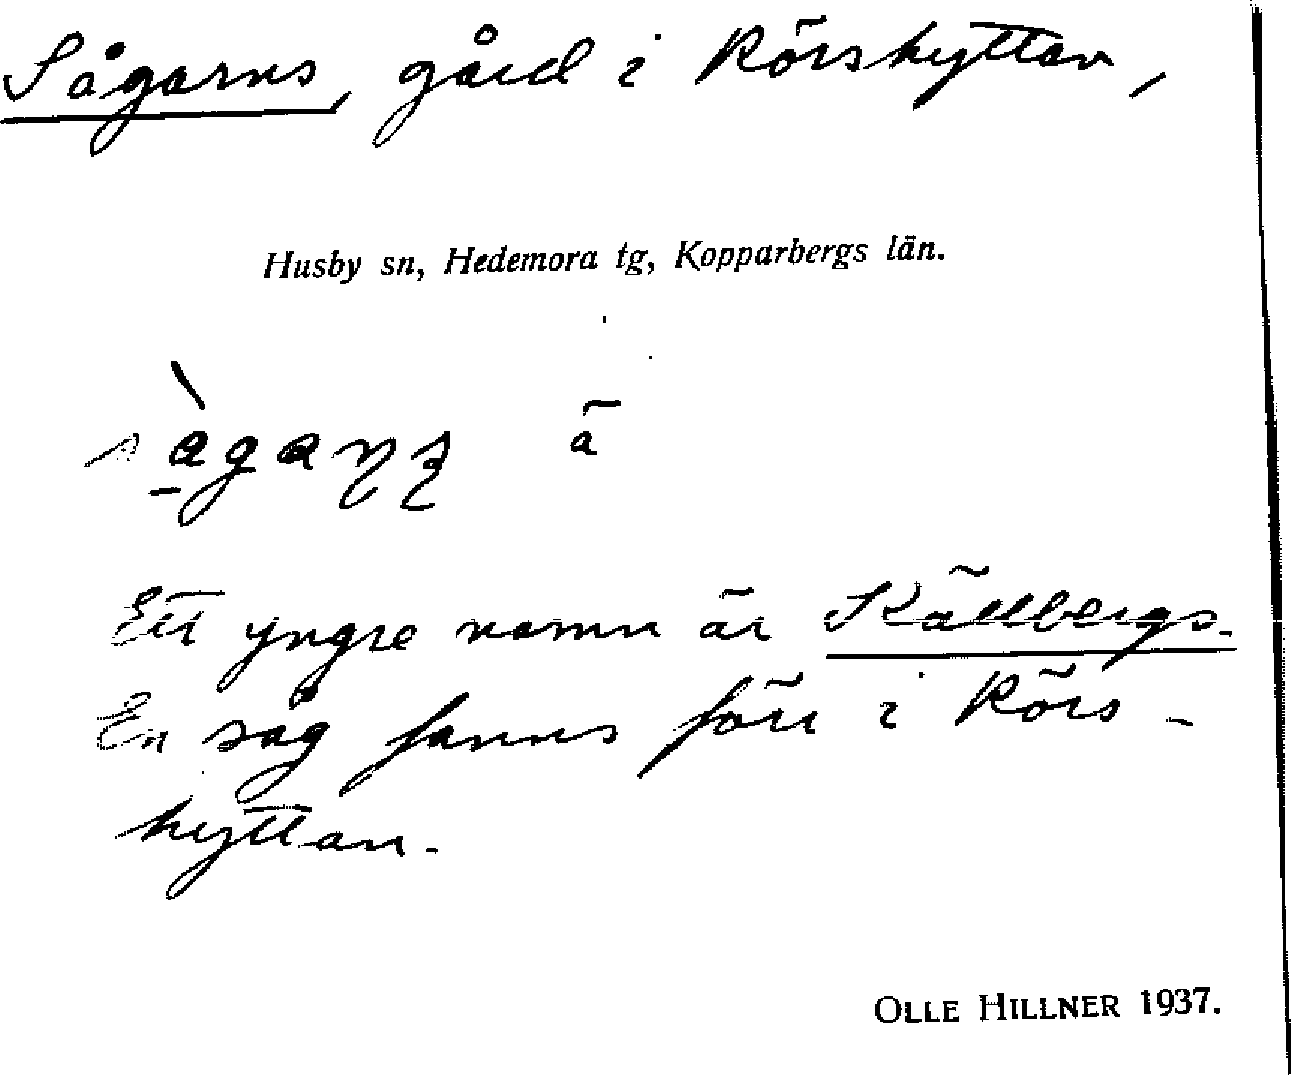 Sågarns, gård i Rörshyttan,
Husby sn, Hedemora tg, Kopparbergs län.
ä
Ett yngre namn är Källbergs.
En såg fanns förr i Rörs-
hyttan.
OLLE HILLNER 1937.